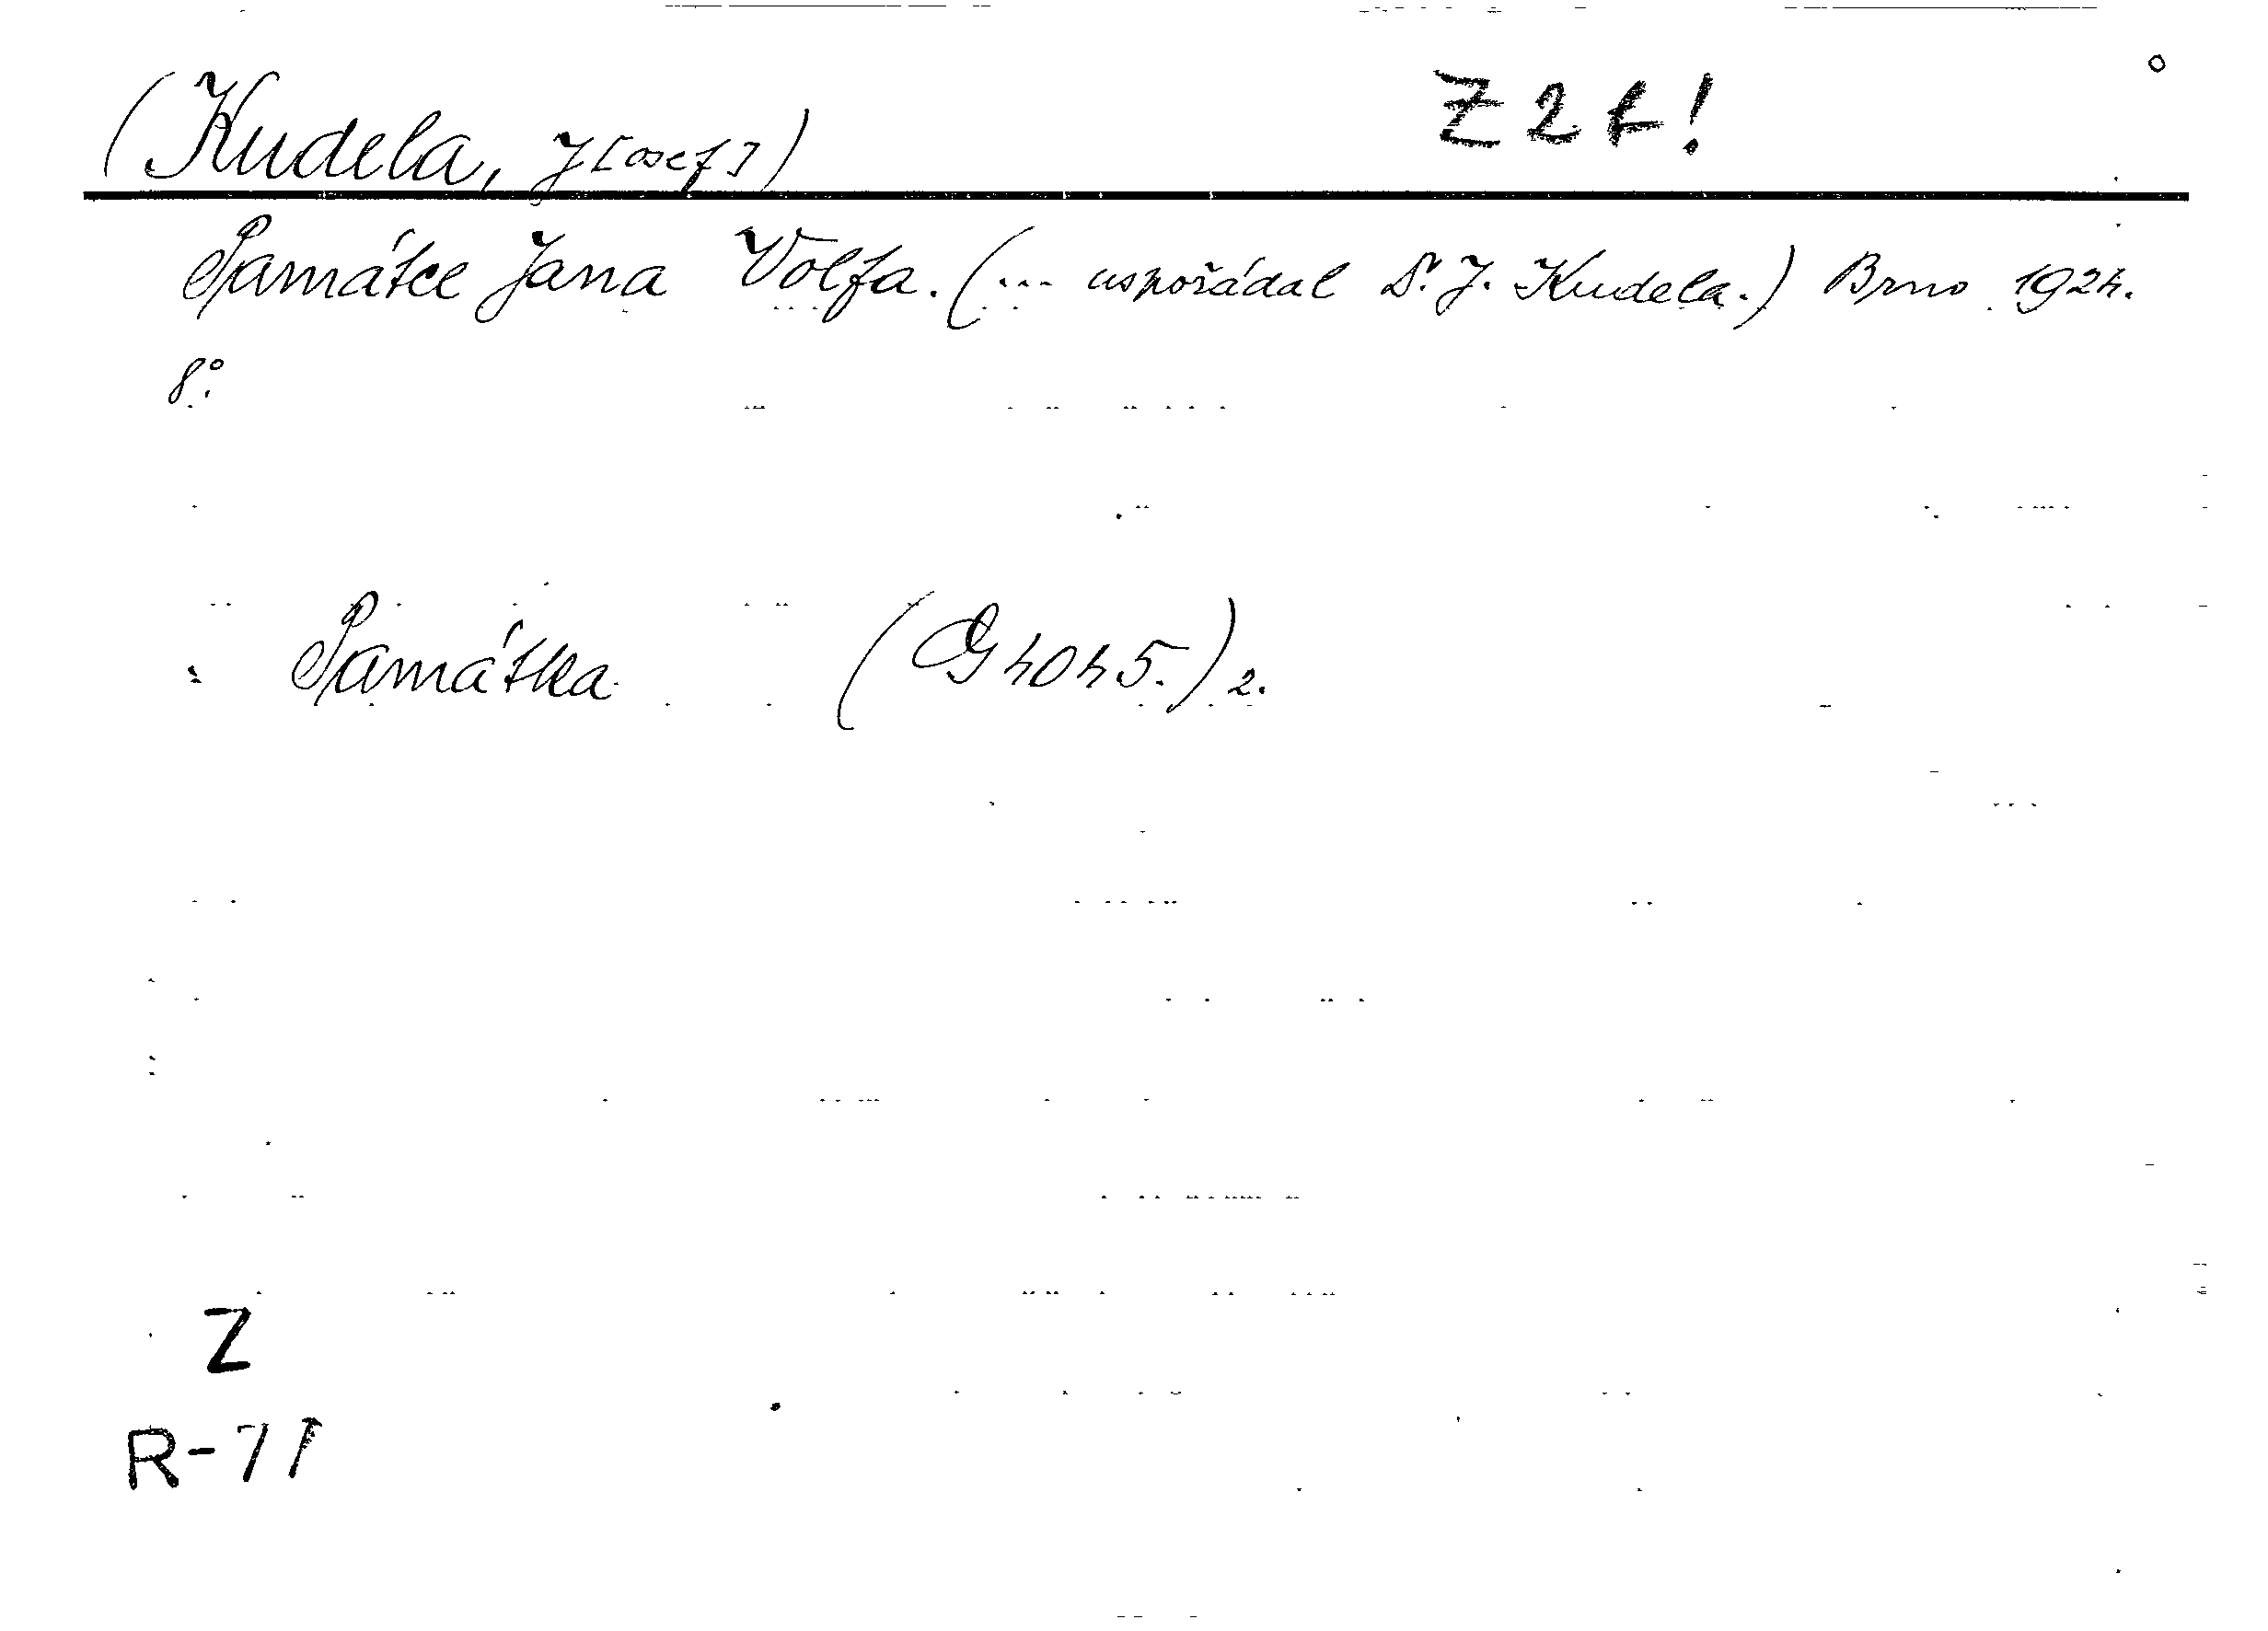 (Kudela, J[osef]) Z 2 t!
Památce Jana Volfa. (... uspořádal Dr. J. Kudela.) Brno 1924.
8°.
Památka (G 4045.) 2.
Z
R-71